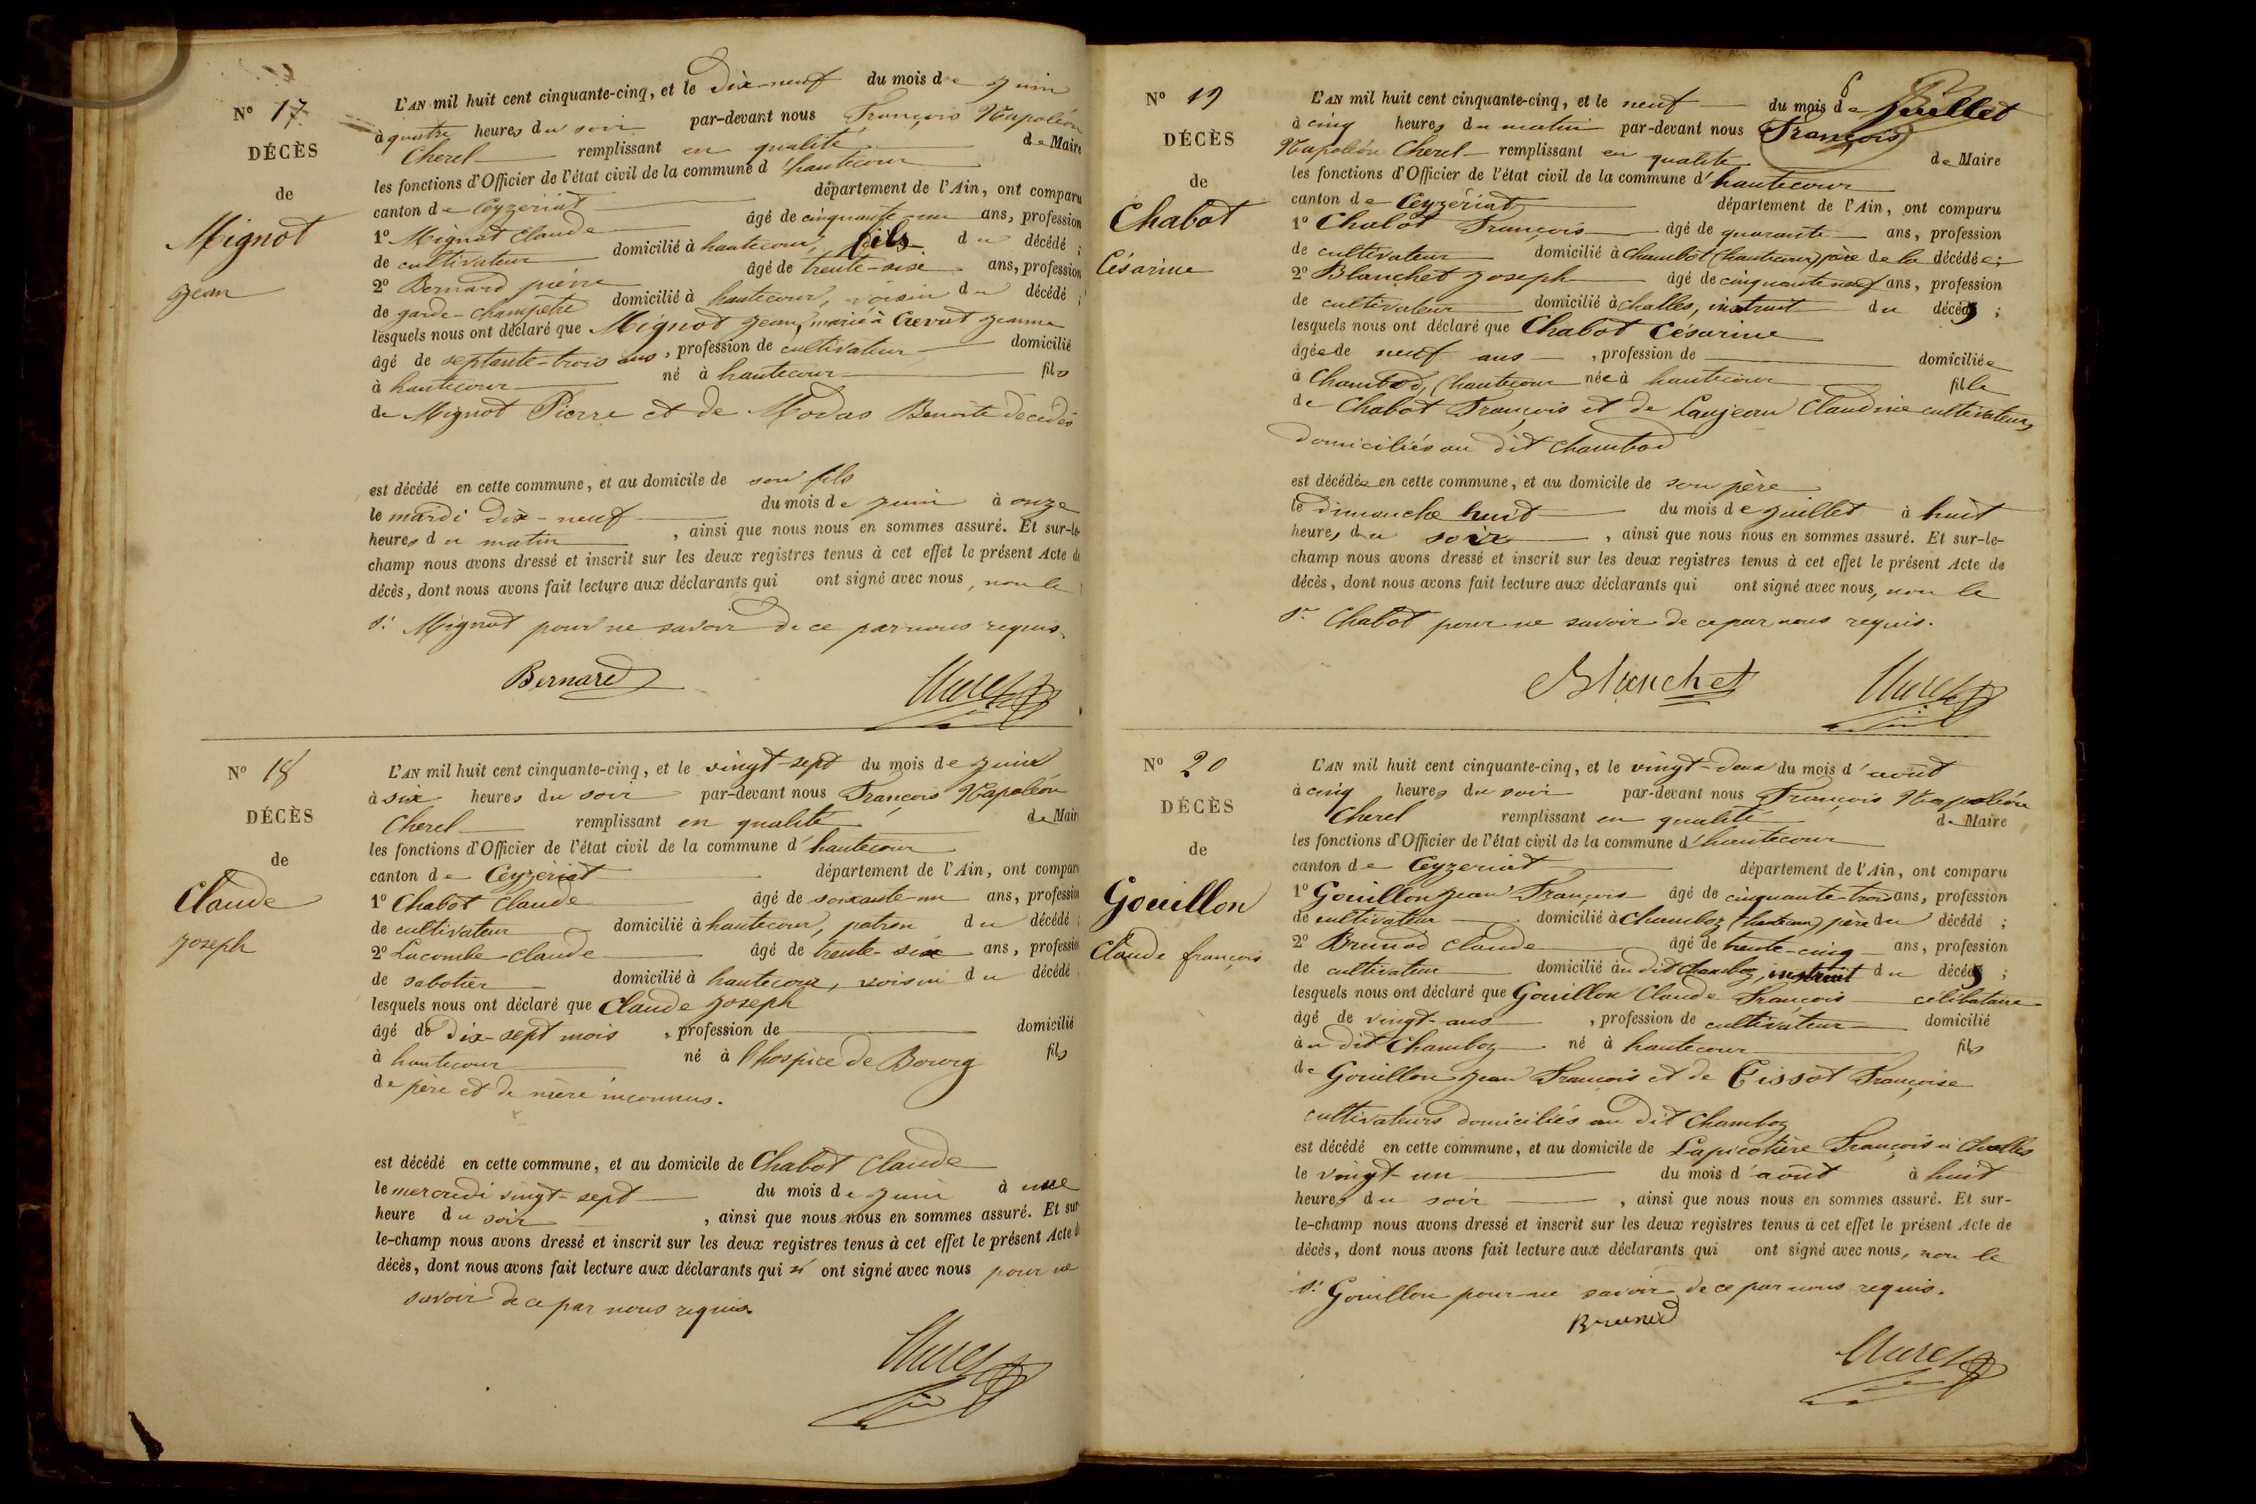 N° 17
DÉCÈS
de
Mignot
Jean
L'AN mil huit cent cinquante-cinq, et le dix-neuf du mois de Juin
à quatre heures du soir par-devant nous François Napoléon
Cherel remplissant en qualité de Maire
les fonctions d'Officier de l'état civil de la commune d'hautecour
canton de Ceyzeriat département de l'Ain, ont comparu
1° Mignot Claude âgé de cinquante-un ans, profession
de cultivateur domicilié à hautecour, fils du décédé ;
2° Bernard pierre âgé de trente-six ans, profession
de garde-champêtre domicilié à hautecour, voisin du décédé ;
lesquels nous ont déclaré que Mignot Jean, marié à Jeanne
âgé de septante-trois ans, profession de cultivateur domicilié
à hautecour né à hautecour fils
de Mignot Pierre et de Modas Benoite décédés
est décédé en cette commune, et au domicile de son fils
le mardi dix-neuf du mois de Juin à onze
heures du matin, ainsi que nous nous en sommes assuré. Et sur-le-
champ nous avons dressé et inscrit sur les deux registres tenus à cet effet le présent Acte de
décès, dont nous avons fait lecture aux déclarants qui ont signé avec nous, non le
Sr Mignot pour ne savoir de ce par nous requis.
Bernard
N° 18
DÉCÈS
de
Claude
Joseph
L'AN mil huit cent cinquante-cinq, et le vingt-sept du mois de Juin
à six heures du soir par-devant nous François Napoléon
Cherel remplissant en qualité de Maire
les fonctions d'Officier de l'état civil de la commune d'hautecour
canton de Ceyzeriat département de l'Ain, ont comparu
1° Chabot Claude âgé de soixante-un ans, profession
de cultivateur domicilié à hautecour, patron du décédé ;
2° Lacombe Claude âgé de trente-six ans, profession
de sabotier domicilié à hautecour, voisin du décédé
lesquels nous ont déclaré que Claude Joseph
âgé de dix-sept mois, profession de domicilié
à hautecour né à l'hospice de Bourg fils
de père et de mère inconnus.
est décédé en cette commune, et au domicile de Chabot Claude
le mercredi vingt-sept du mois de Juin à une
heure du soir, ainsi que nous nous en sommes assuré. Et sur
le-champ nous avons dressé et inscrit sur les deux registres tenus à cet effet le présent Acte de
décès, dont nous avons fait lecture aux déclarants qui n'ont signé avec nous pour ne
savoir de ce par nous requis.
N° 19
DÉCÈS
de
Chabot
Césarine
L'AN mil huit cent cinquante-cinq, et le neuf du mois de Juillet
à cinq heures du matin par-devant nous François
Napoléon Cherel remplissant en qualité de Maire
les fonctions d'Officier de l'état civil de la commune d'hautecour
canton de Ceyzériat département de l'Ain, ont comparu
1° Chabot François âgé de quarante ans, profession
de cultivateur domicilié à Chambod (hautecour) père de la décédée ;
2° Blanchet Joseph âgé de cinquante neuf ans, profession
de cultivateur domicilié à Challes, instruit du décés ;
lesquels nous ont déclaré que Chabot Césarine
âgée de neuf ans, profession de domiciliée
à Chambod, (hautecour née à hautecour fille
de Chabot François et de Laujean Claudine cultivateurs,
domiciliés au dit Chambod
est décédée en cette commune, et au domicile de son père
le dimanche huit du mois de Juillet à huit
heures du soir, ainsi que nous nous en sommes assuré. Et sur-le-
champ nous avons dressé et inscrit sur les deux registres tenus à cet effet le présent Acte de
décès, dont nous avons fait lecture aux déclarants qui ont signé avec nous, non le
Sr Chabot pour ne savoir de ce par nous requis.
Blanchet
N° 20
DÉCÈS
de
Gouillon
Claude françois
L'AN mil huit cent cinquante-cinq, et le vingt-deux du mois d'août
à cinq heures du soir par-devant nous François Napoléon
Cherel remplissant en qualité de Maire
les fonctions d'Officier de l'état civil de la commune d'hautecour
canton de Ceyzeriat département de l'Ain, ont comparu
1° Gouillon Jean François âgé de cinquante-trois ans, profession
de cultivateur domicilié à Chamboz (hautecour) père du décédé ;
2° Brunod Claude âgé de trente-cinq ans, profession
de cultivateur domicilié au dit Chamboz, instruit du décés ;
lesquels nous ont déclaré que Gouillon Claude François célibataire
âgé de vingt-ans, profession de cultivateur domicilié
au dit Chamboz né à hautecour fils
de Gouillon Jean François et de Tissot Françoise
cultivateurs domiciliés au dit Chamboz
est décédé en cette commune, et au domicile de Lapicotière François à Challes
le vingt-un du mois d'août à huit
heures du soir, ainsi que nous nous en sommes assuré. Et sur-
le-champ nous avons dressé et inscrit sur les deux registres tenus à cet effet le présent Acte de
décès, dont nous avons fait lecture aux déclarants qui ont signé avec nous, non le
Sr Gouillon pour ne savoir de ce par nous requis.
Brunod